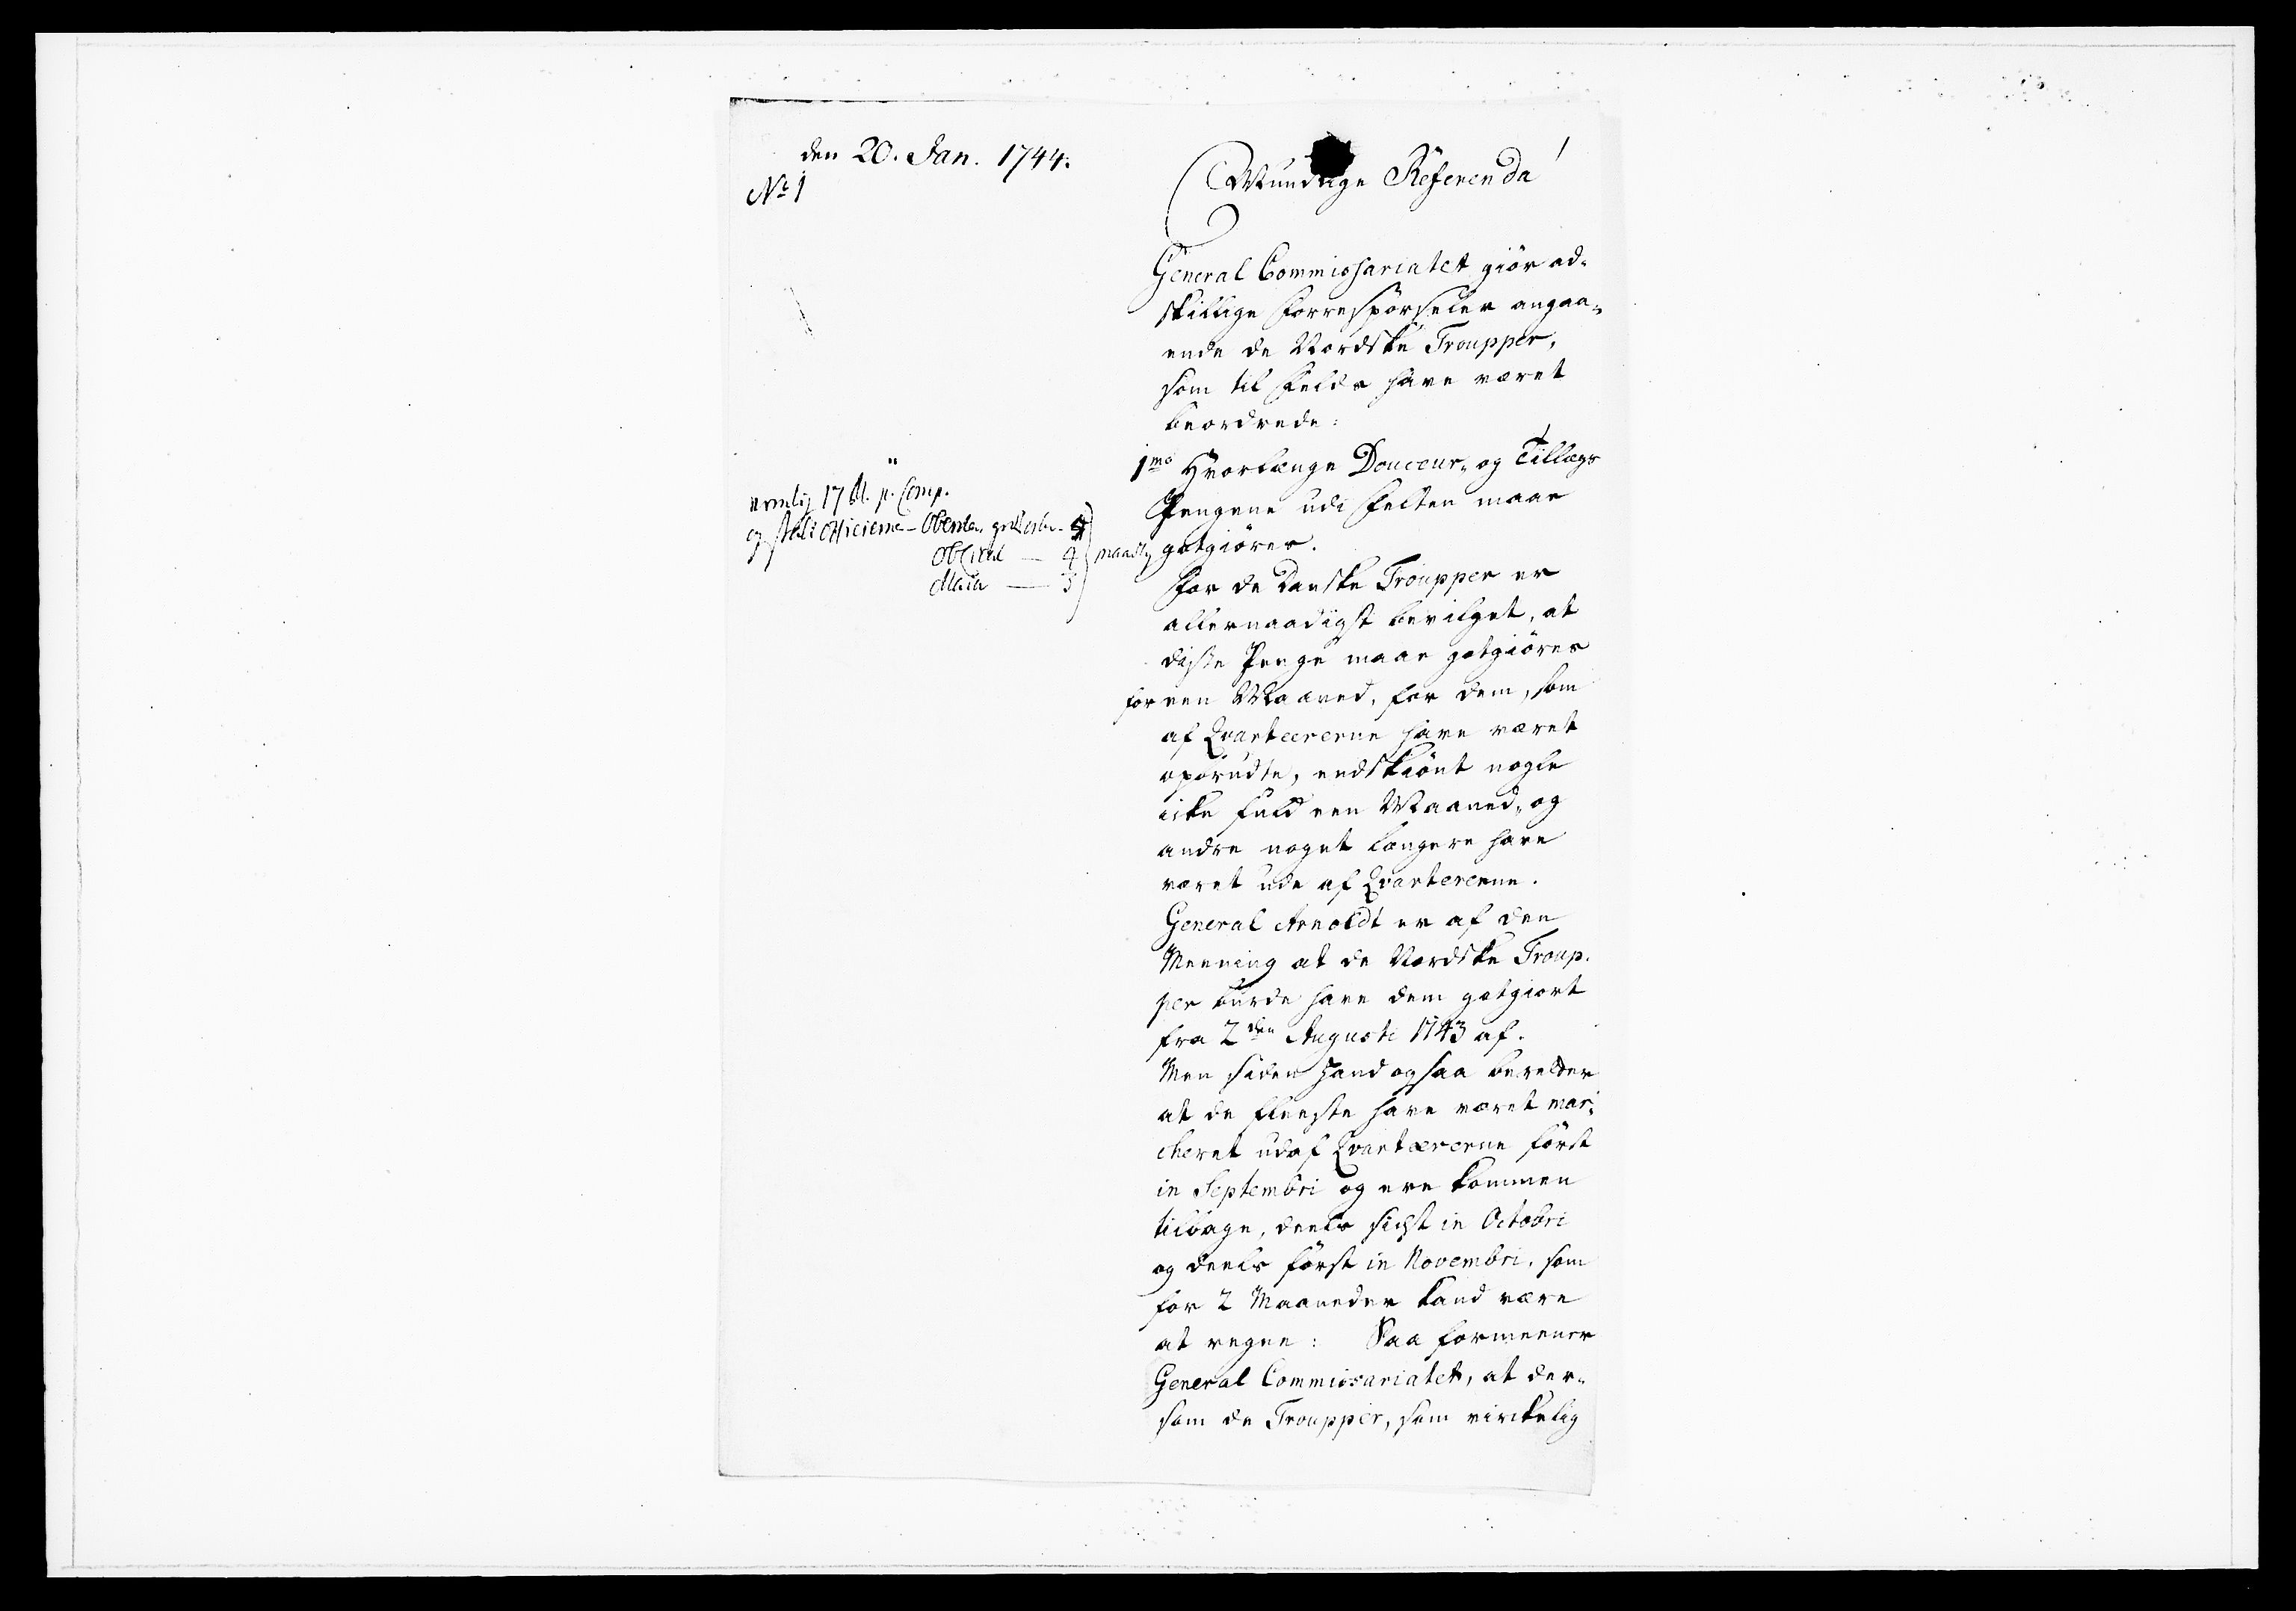 den 20. Jan. 1744.
No 1
Mundtlige Referenda
General Commissariatet giör ad-
skillige Forrespörseler angaa-
ende de Nordske Troupper,
som til Felds have været
beordrede:
1mo Hvorlænge Douceur- og Tillægs
Pengene udi Felten maae
gotgiöres.
nemlig 17 p. Comp.
og Stabs Officierne - Obersten
Obl. 4
Major 3
maanedl.
For de Danske Troupper er
allernaadigst bevilget, at
disse Penge maae gotgiöres
for een Maaned, for dem, som
af Qvarteererne have været
oprudte, endskiönt nogle
icke fuld een Maaned, og
andre noget længere have
været ude af Qvartererne.
General Arnoldt er af den
Meening at de Nordske Troup-
per burde have dem gotgiort
fra 2den Augusti 1743 af.
Men siden hand ogsaa beretter
at de fleeste have været mar-
cheret udaf Qvartærerne först
in Septembri og ere kommen
tilbage, deels sidst in Octobri
og deels först in Novembri, som
for 2 Maaneder kand være
at regne: Saa formeener
General Commissariatet, at der-
som de Troupper, som virckelig